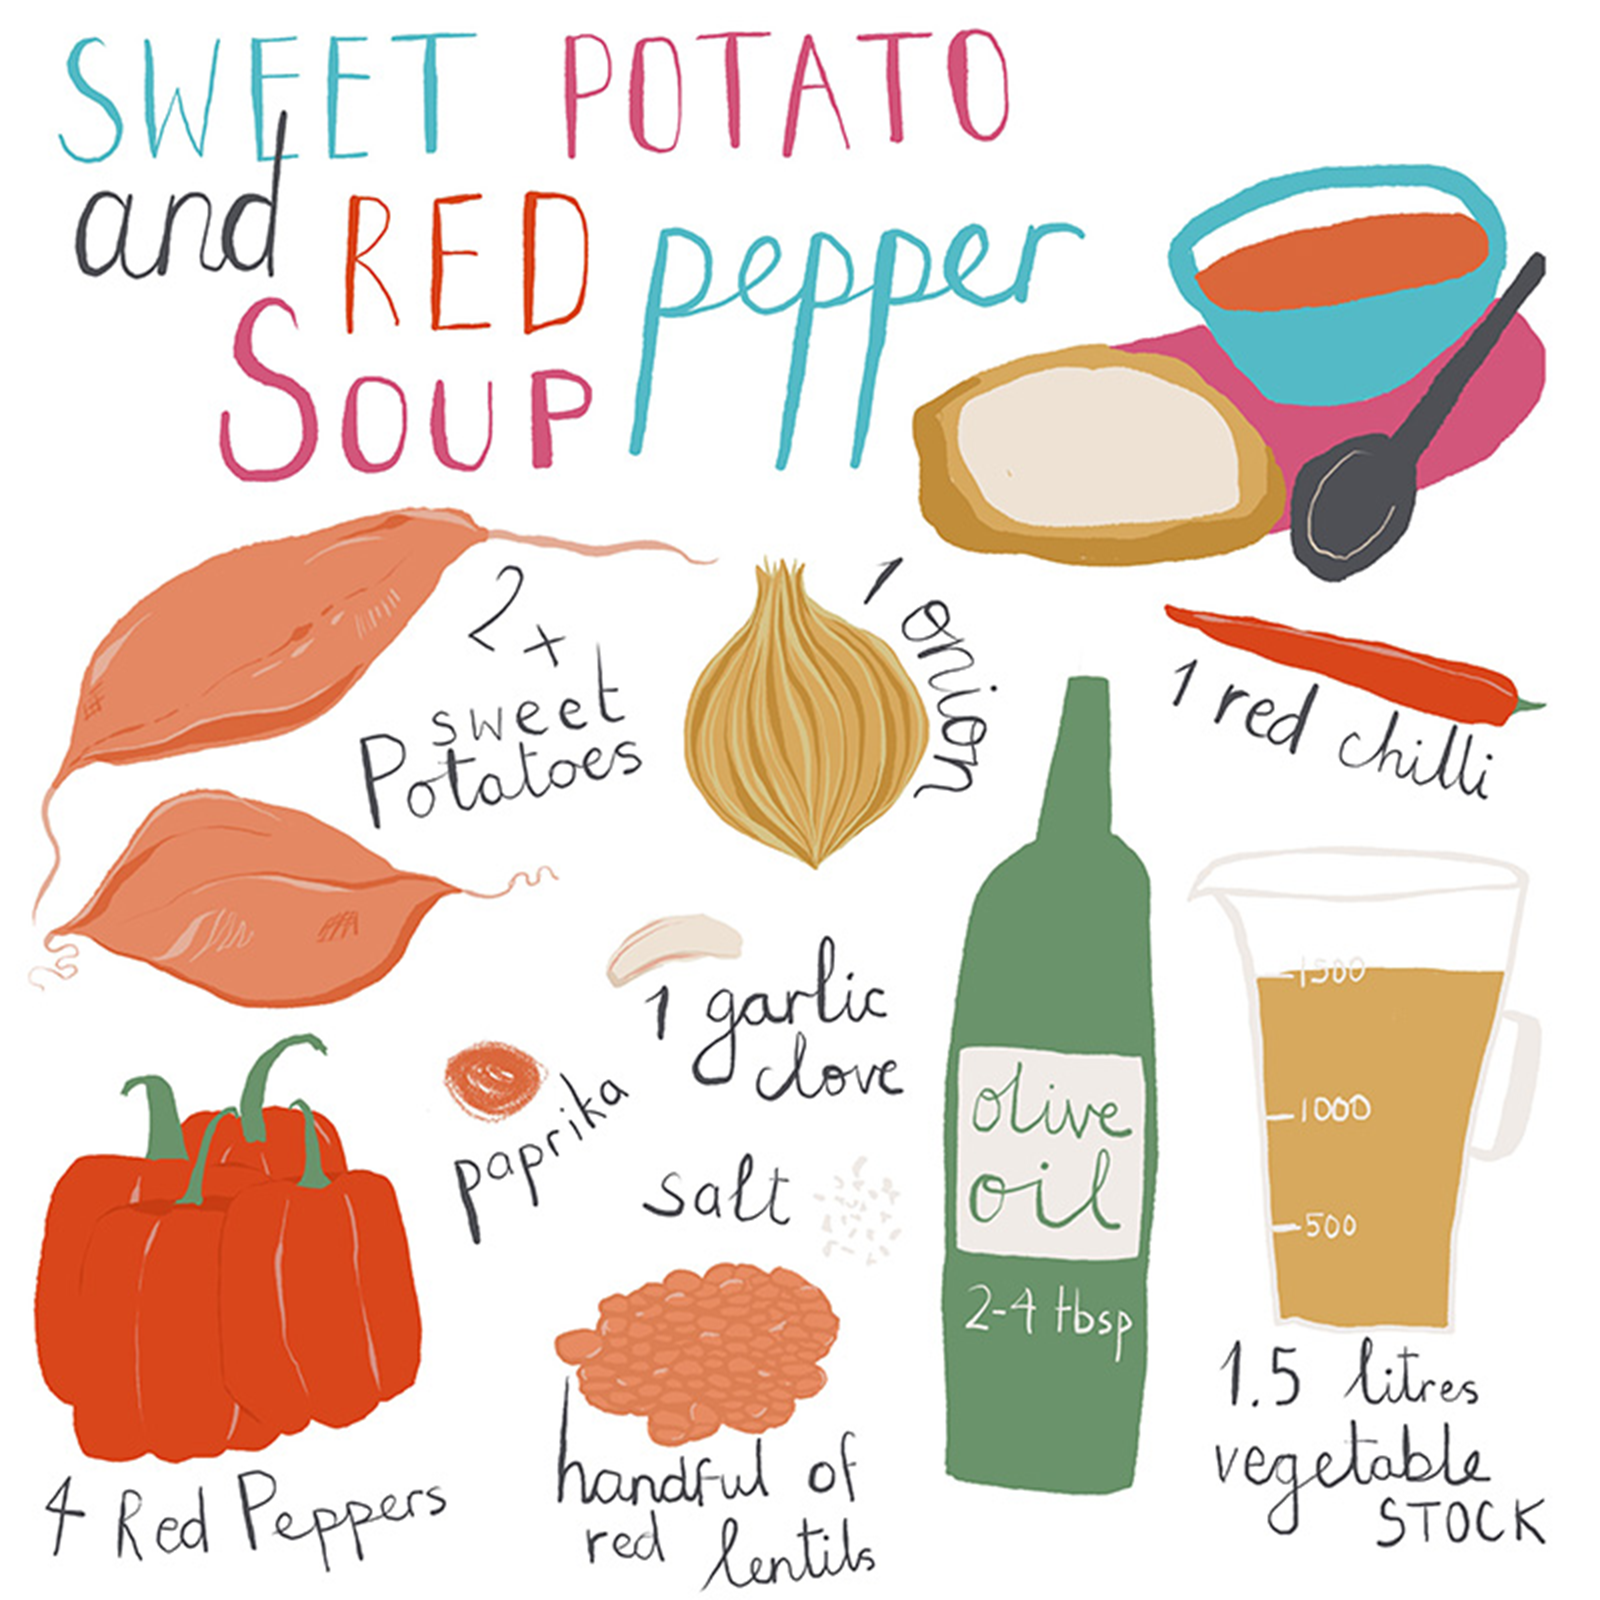 SWEET POTATO
and RED pepper
SOUP
2+
sweet
Potatoes
1 onion
1 red chilli
1 garlic
clove
paprika
salt
olive
oil
2-4 tbsp
1500
1000
500
1.5 litres
vegetable
STOCK
4 Red Peppers
handful of
red lentils